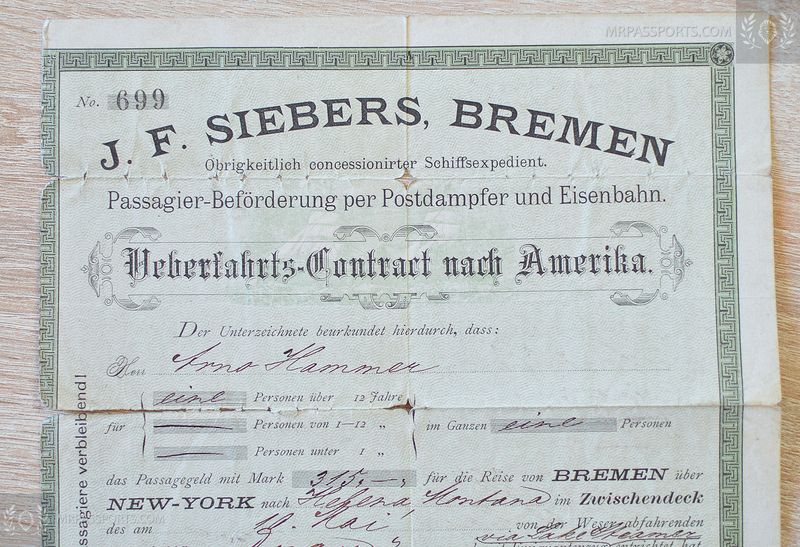 MRPASSPORTS.COM
No. 699
J. F. SIEBERS, BREMEN
Obrigkeitlich concessionirter Schiffsexpedient.
Passagier-Beförderung per Postdampfer und Eisenbahn.
Ueberfahrts-Contract nach Amerika.
Der Unterzeichnete beurkundet hierdurch, dass:
Herrn Arno Hammer
eine Personen über 12 Jahre
für Personen von 1—12 „ im Ganzen eine Personen
Personen unter 1 „
das Passagegeld mit Mark 315.— für die Reise von BREMEN über
NEW-YORK nach Helena, Montana im Zwischendeck
des am 9. Mai von der Weser abfahrenden
via Lake Steamer
ssagiere verbleibend!
MRPASSPORTS.COM